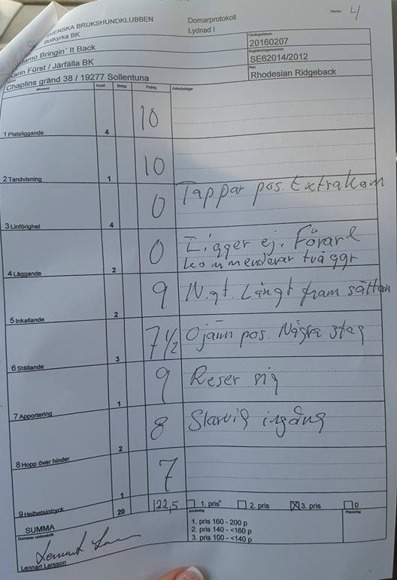 4
SVENSKA BRUKSHUNDKLUBBEN
BK
Domarprotokoll
Lydnad I
Bringin´ It Back
20160207
Fürst / Järfälla BK
SE62014/2012
Chaplins gränd 38 / 19277 Sollentuna
Rhodesian Ridgeback
Moment Koeff Betyg Poäng Anteckningar
1 Platsliggande 4 10
2 Tandvisning 1 10
3 Linförighet 4 0 Tappar pos Extrakom
4 Läggande 2 0 Ligger ej. Förare
kommenderar två ggr
5 Inkallande 2 9 N.gt. Långt fram sättan
6 Ställande 3 7 1/2 Ojämn pos. Några steg
7 Apportering 1 9 Reser sig
8 Hopp över hinder 2 8 Slarvig ingång
9 Helhetsintryck 1 7
SUMMA 20 122,5 1. pris 2. pris 3. pris 0
1. pris 160 - 200 p
2. pris 140 - <160 p
3. pris 100 - <140 p
Lennart Larsson